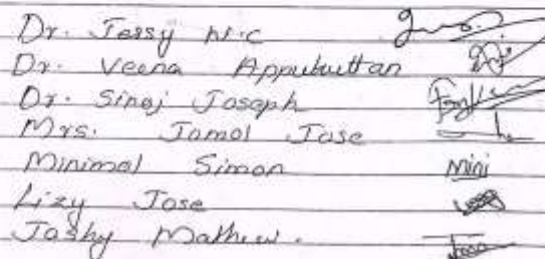 Dr. Jessy N.C
Dr. Veena Appukuttan
Dr. Sinoj Joseph
Mrs. Jomol Jose
Minimol Simon Mini
Lizy Jose
Joshy Mathew.